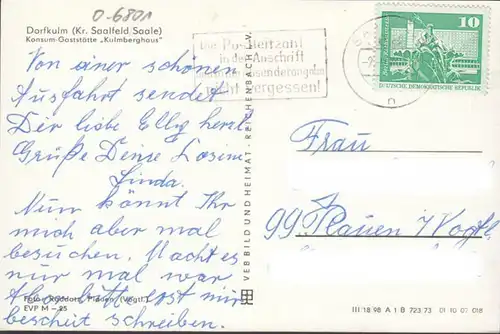 0-6801
Dorfkulm (Kr. Saalfeld Saale)
Konsum-Gaststätte „Kulmberghaus"
Die Postleitzahl
in der Anschrift
nicht vergessen!
10
DEUTSCHE DEMOKRATISCHE REPUBLIK
n
Von aner schönen
Ausfahrt sendet
Der liebe Elly herzl.
Grüße Deine
Linda.
Nun könnt Ihr
mich aber mal
besuchen. Macht es
nur mal war
Aber bitte erst mir
bescheit schreiben.
Foto: Rüddorf, Plauen (Vogtl.)
EVP M –25
VEB BILD UND HEIMAT · REICHENBACH I. V.
Frau
99 Plauen i/Vogtl.
III 18 98 A 1 B 723 73 01 10 01 018